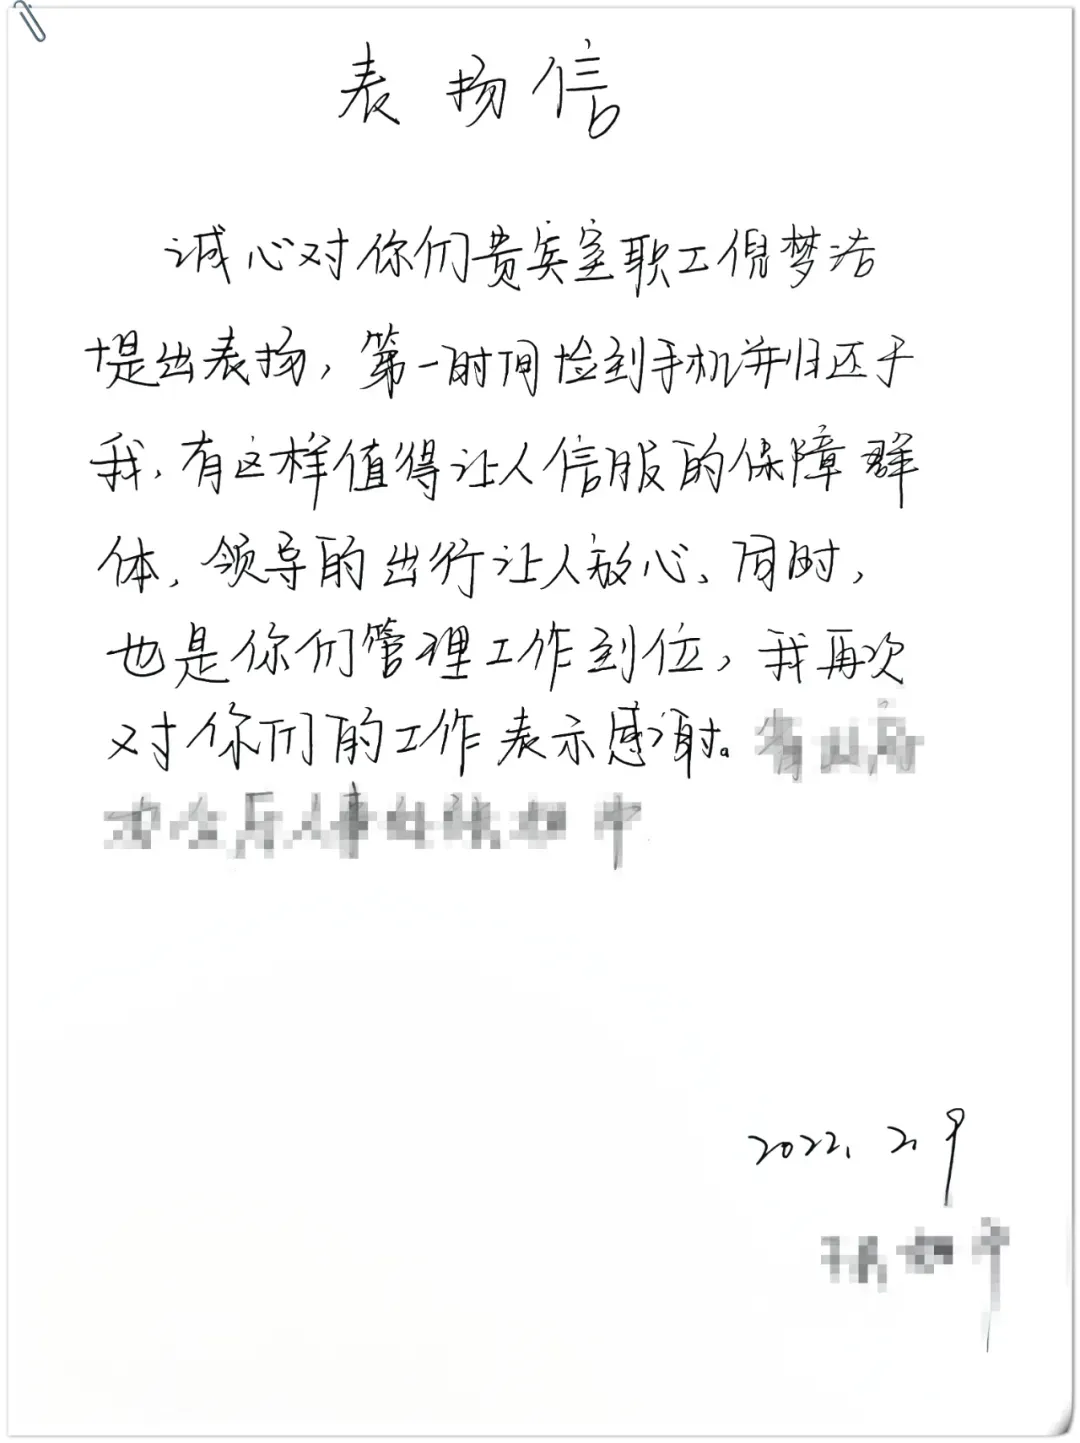 表扬信
诚心对你们贵宾室职工倪梦洁
提出表扬，第一时间捡到手机并归还于
我，有这样值得让人信服的保障群
体，领导的出行让人放心、同时，
也是你们管理工作到位，我再次
对你们的工作表示感谢。
2022.2.9